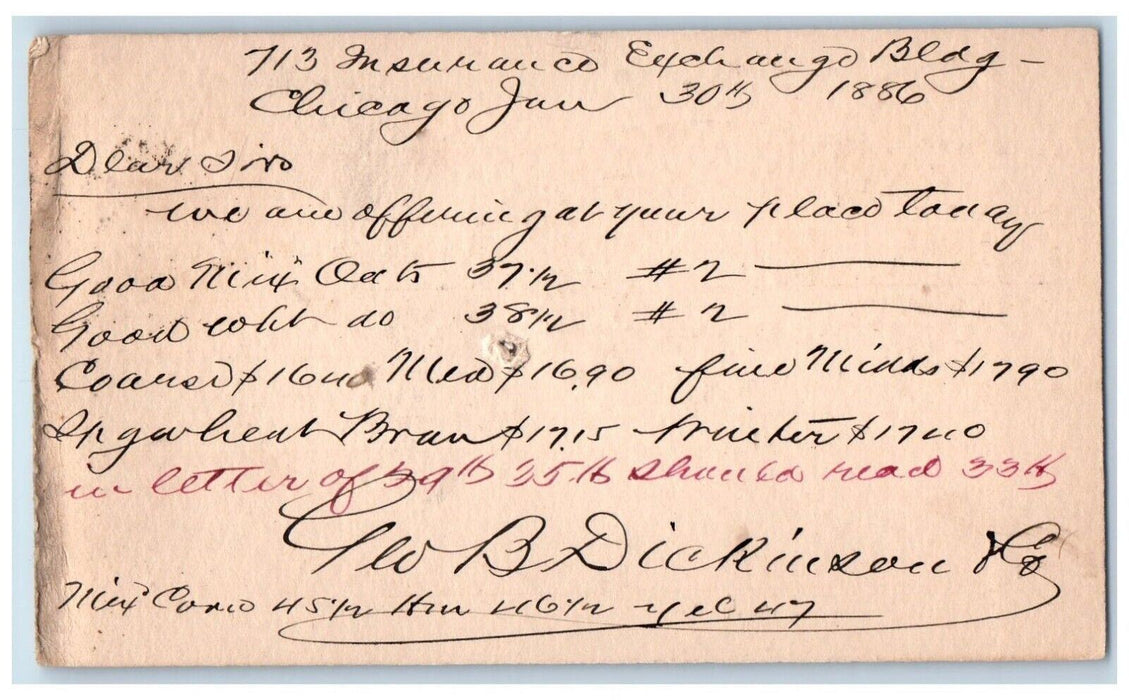 713 Insurance Exchange Bldg -
Chicago Jan 30th 1886
Dear Sirs
we are offering at your place today
Good Mix Oats 37 1/2 #2 ———
Good wht do 38 1/2 #2 ———
Coarse $16 40 Med $16.90 fine Midds $17 90
Spg wheat Bran $17.15 Winter $17 40
in letter of 29th 35 lb should read 33 lb
Geo B Dickinson & Co
Mix Corn 45 1/2 Hm 46 1/2 Yel 47